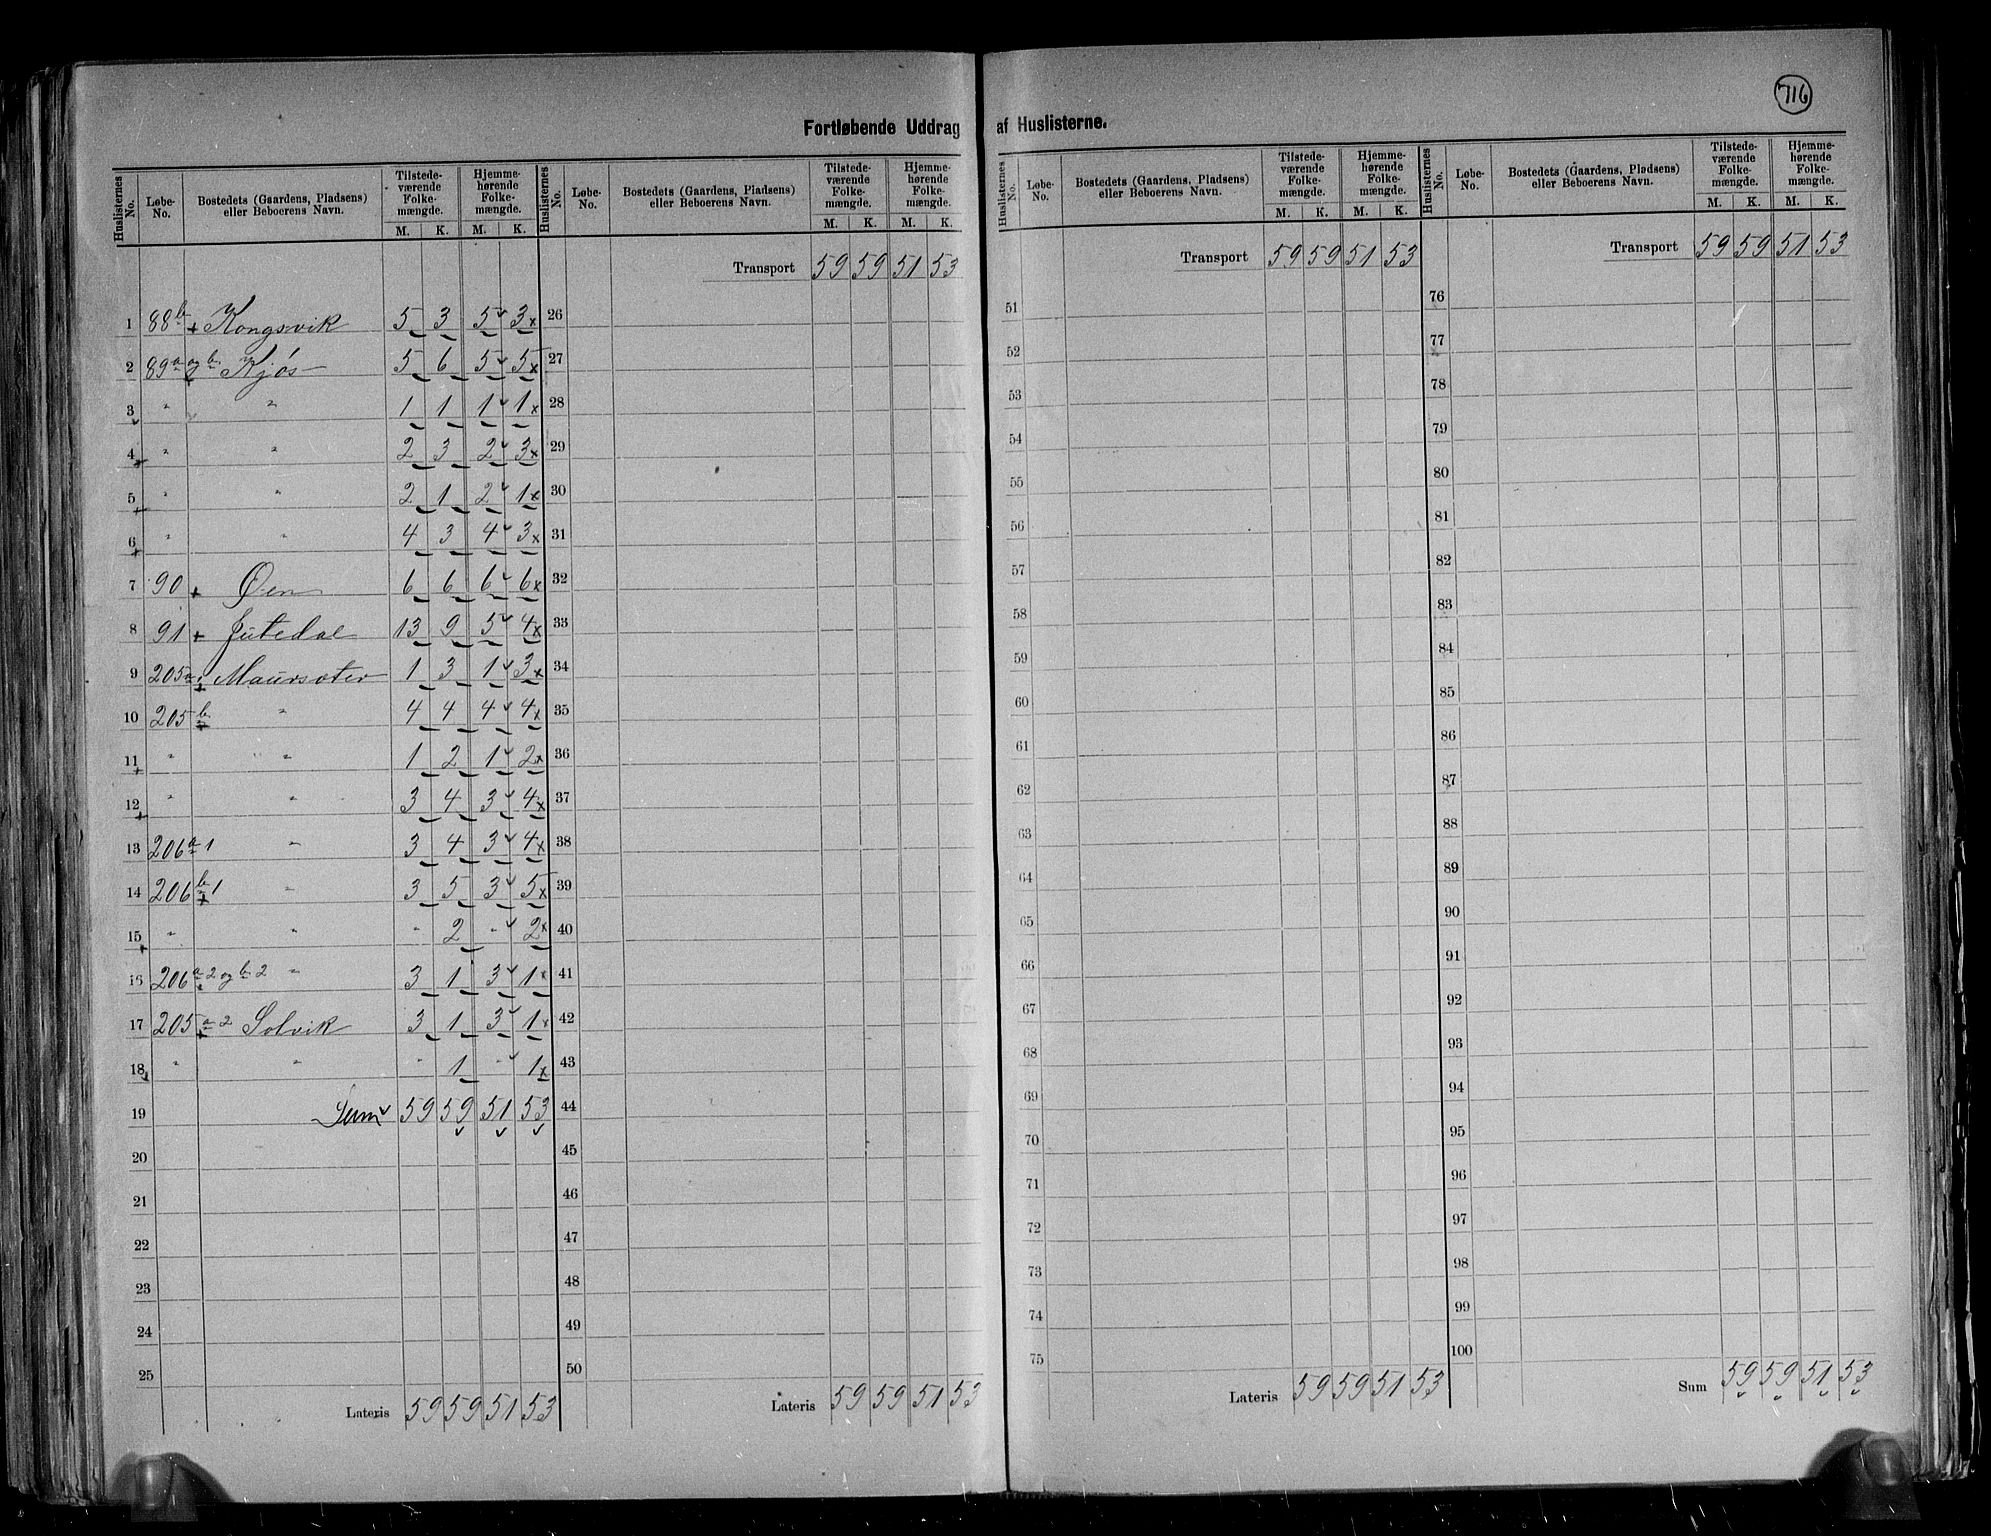 716
Fortløbende Uddrag af Huslisterne.
Huslisternes No. | Løbe-No. | Bostedets (Gaardens, Pladsens) eller Beboerens Navn. | Tilstedeværende Folkemængde. M. K. | Hjemmehørende Folkemængde. M. K.
1 88b + Kongsvik 5 3 5 3
2 89a og b Kjøs 5 6 5 5
3 " " 1 1 1 1
4 " " 2 3 2 3
5 " " 2 1 2 1
6 " " 4 3 4 3
7 90 + Øen 6 6 6 6
8 91 + Jutedal 13 9 5 4
9 205a Maursæter 1 3 1 3
10 205b " 4 4 4 4
11 " " 1 2 1 2
12 " " 3 4 3 4
13 206a1 " 3 4 3 4
14 206b1 " 3 5 3 5
15 " " " 2 " 2
16 206a2 og b2 " 3 1 3 1
17 205a2 Solvik 3 1 3 1
18 " " " 1 " 1
19 Sum 59 59 51 53
20
21
22
23
24
25
Lateris 59 59 51 53
Huslisternes No. | Løbe-No. | Bostedets (Gaardens, Pladsens) eller Beboerens Navn. | Tilstedeværende Folkemængde. M. K. | Hjemmehørende Folkemængde. M. K.
Transport 59 59 51 53
26
27
28
29
30
31
32
33
34
35
36
37
38
39
40
41
42
43
44
45
46
47
48
49
50
Lateris 59 59 51 53
Huslisternes No. | Løbe-No. | Bostedets (Gaardens, Pladsens) eller Beboerens Navn. | Tilstedeværende Folkemængde. M. K. | Hjemmehørende Folkemængde. M. K.
Transport 59 59 51 53
51
52
53
54
55
56
57
58
59
60
61
62
63
64
65
66
67
68
69
70
71
72
73
74
75
Lateris 59 59 51 53
Huslisternes No. | Løbe-No. | Bostedets (Gaardens, Pladsens) eller Beboerens Navn. | Tilstedeværende Folkemængde. M. K. | Hjemmehørende Folkemængde. M. K.
Transport 59 59 51 53
76
77
78
79
80
81
82
83
84
85
86
87
88
89
90
91
92
93
94
95
96
97
98
99
100
Sum 59 59 51 53